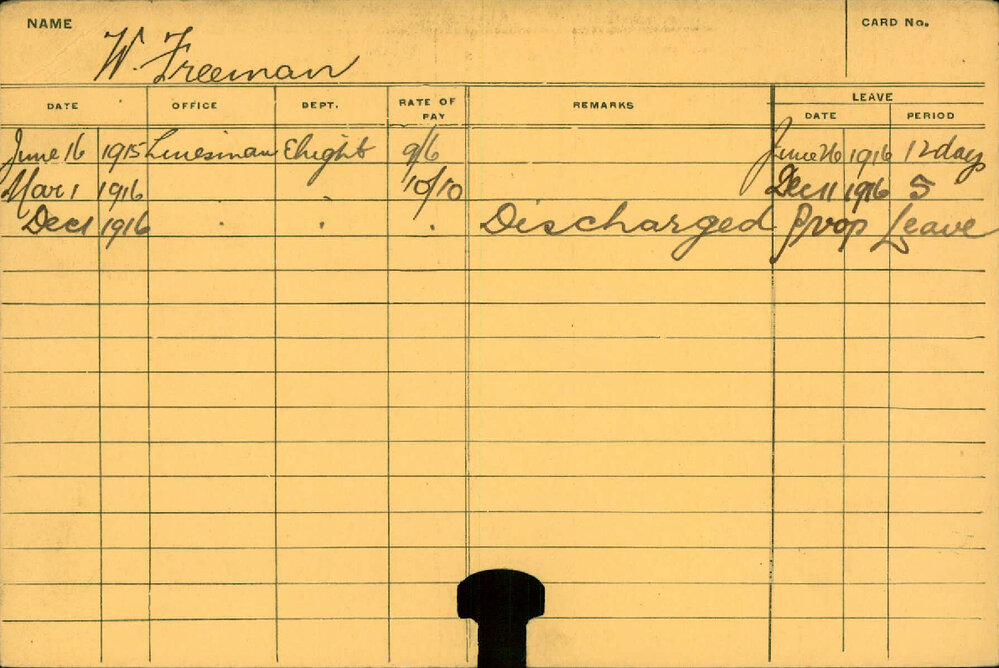 NAME W. Freeman CARD No.
DATE OFFICE DEPT. RATE OF PAY REMARKS LEAVE
DATE PERIOD
June 16 1915 Linesman Elight 9/6 June 26 1916 12 days
Mar 1 1916 10/10 Dec 11 1916 5
Dec 1 1916 . . . Discharged Prop Leave